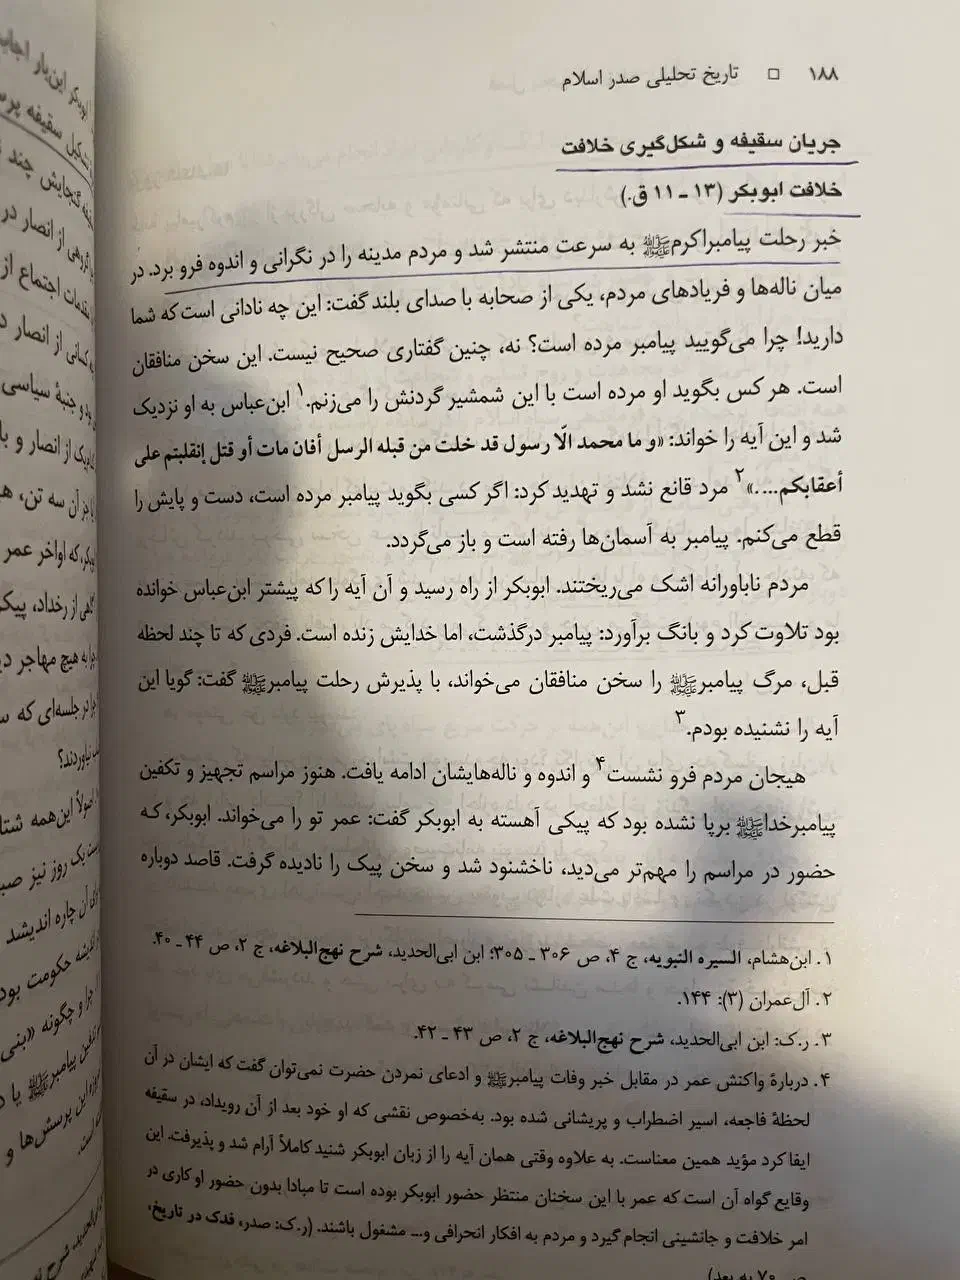 ۱۸۸ □ تاریخ تحلیلی صدر اسلام
جریان سقیفه و شکل‌گیری خلافت
خلافت ابوبکر (۱۳ ـ ۱۱ ق.)
خبر رحلت پیامبراکرم ﷺ به سرعت منتشر شد و مردم مدینه را در نگرانی و اندوه فرو برد. در
میان ناله‌ها و فریادهای مردم، یکی از صحابه با صدای بلند گفت: این چه نادانی است که شما
دارید! چرا می‌گویید پیامبر مرده است؟ نه، چنین گفتاری صحیح نیست. این سخن منافقان
است. هر کس بگوید او مرده است با این شمشیر گردنش را می‌زنم.۱ ابن‌عباس به او نزدیک
شد و این آیه را خواند: «و ما محمد الّا رسول قد خلت من قبله الرسل أفان مات أو قتل إنقلبتم علی
أعقابکم....»۲ مرد قانع نشد و تهدید کرد: اگر کسی بگوید پیامبر مرده است، دست و پایش را
قطع می‌کنم. پیامبر به آسمان‌ها رفته است و باز می‌گردد.
مردم ناباورانه اشک می‌ریختند. ابوبکر از راه رسید و آن آیه را که پیشتر ابن‌عباس خوانده
بود تلاوت کرد و بانگ برآورد: پیامبر درگذشت، اما خدایش زنده است. فردی که تا چند لحظه
قبل، مرگ پیامبر ﷺ را سخن منافقان می‌خواند، با پذیرش رحلت پیامبر ﷺ گفت: گویا این
آیه را نشنیده بودم.۳
هیجان مردم فرو نشست۴ و اندوه و ناله‌هایشان ادامه یافت. هنوز مراسم تجهیز و تکفین
پیامبرخدا ﷺ برپا نشده بود که پیکی آهسته به ابوبکر گفت: عمر تو را می‌خواند. ابوبکر، که
حضور در مراسم را مهم‌تر می‌دید، ناخشنود شد و سخن پیک را نادیده گرفت. قاصد دوباره
۱. ابن‌هشام، السیره النبویه، ج ۴، ص ۳۰۶ ـ ۳۰۵؛ ابن ابی‌الحدید، شرح نهج‌البلاغه، ج ۲، ص ۴۴ ـ ۴۰.
۲. آل‌عمران (۳): ۱۴۴.
۳. ر.ک: ابن ابی‌الحدید، شرح نهج‌البلاغه، ج ۲، ص ۴۳ ـ ۴۲.
۴. دربارهٔ واکنش عمر در مقابل خبر وفات پیامبر ﷺ و ادعای نمردن حضرت نمی‌توان گفت که ایشان در آن
لحظهٔ فاجعه، اسیر اضطراب و پریشانی شده بود. به‌خصوص نقشی که او خود بعد از آن رویداد، در سقیفه
ایفا کرد مؤید همین معناست. به علاوه وقتی همان آیه را از زبان ابوبکر شنید کاملاً آرام شد و پذیرفت. این
وقایع گواه آن است که عمر با این سخنان منتظر حضور ابوبکر بوده است تا مبادا بدون حضور او کاری در
امر خلافت و جانشینی انجام گیرد و مردم به افکار انحرافی و... مشغول باشند. (ر.ک: صدر، فدک در تاریخ،
ص ۷۰ به بعد)
ابوبکر این‌بار اجابت
تشکیل سقیفه
گنجایش چند
گروهی از انصار در
مقدمات اجتماع از
کسانی از انصار
و جنبهٔ سیاسی
یک از انصار و
جز آن سه تن،
که اواخر عمر
از رخداد،
به هیچ مهاجر
در جلسه‌ای که
نیاوردند؟
اصولاً این‌همه
یک روز نیز
آن چاره اندیشد
اندیشه حکومت بود
چرا و چگونه «بنی
پیامبر ﷺ یا
این پرسش‌ها و
است.